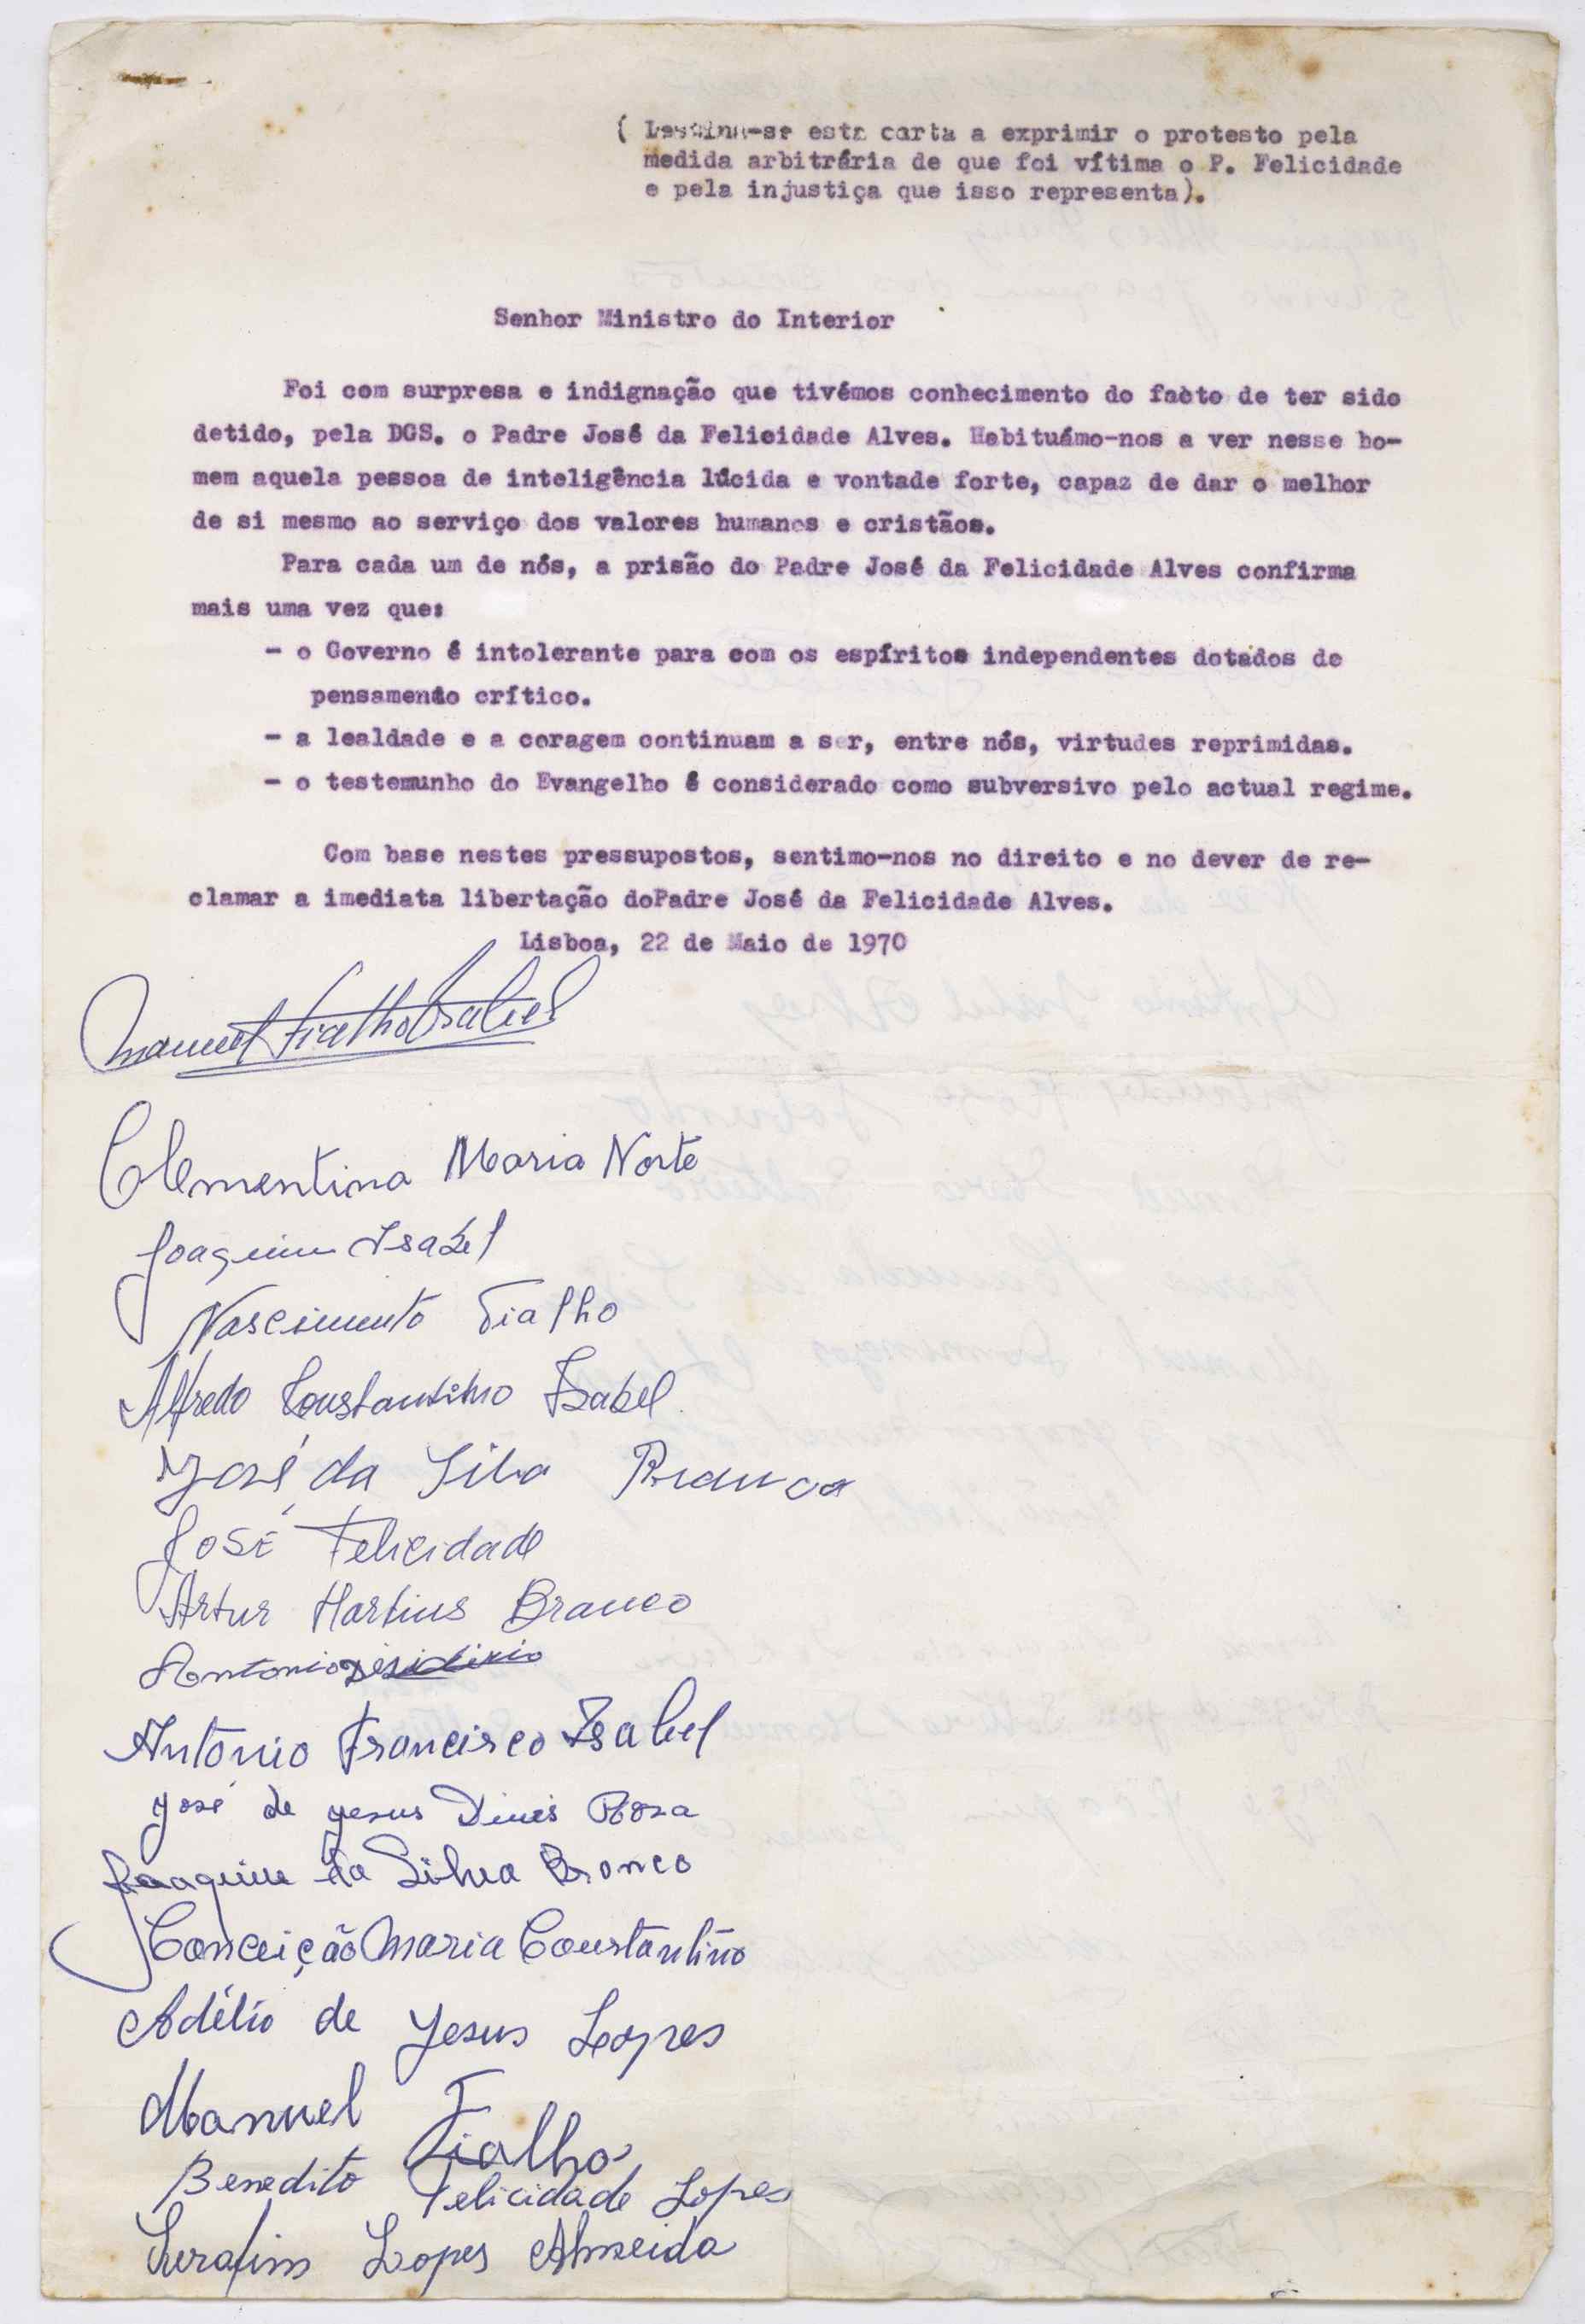 ( Destina-se esta carta a exprimir o protesto pela
medida arbitrária de que foi vítima o P. Felicidade
e pela injustiça que isso representa).
Senhor Ministro do Interior
Foi com surpresa e indignação que tivémos conhecimento do facto de ter sido
detido, pela DGS. o Padre José da Felicidade Alves. Habituámo-nos a ver nesse ho-
mem aquela pessoa de inteligência lúcida e vontade forte, capaz de dar o melhor
de si mesmo ao serviço dos valores humanos e cristãos.
Para cada um de nós, a prisão do Padre José da Felicidade Alves confirma
mais uma vez que:
- o Governo é intolerante para com os espíritos independentes dotados de
pensamento crítico.
- a lealdade e a coragem continuam a ser, entre nós, virtudes reprimidas.
- o testemunho do Evangelho é considerado como subversivo pelo actual regime.
Com base nestes pressupostos, sentimo-nos no direito e no dever de re-
clamar a imediata libertação doPadre José da Felicidade Alves.
Lisboa, 22 de Maio de 1970
Manuel Fialho Isabel
Clementina Maria Norte
Joaquim Isabel
Nascimento Fialho
Alfredo Constantino Isabel
José da Silva
José Felicidade
Artur Martins Branco
Antonio
António Francisco Isabel
José de Jesus Dinis Rosa
Joaquim da Silva Bronco
Conceição Maria Constantino
Adélio de Jesus Lopes
Manuel Fialho
Benedito Felicidade Lopes
Serafim Lopes Almeida